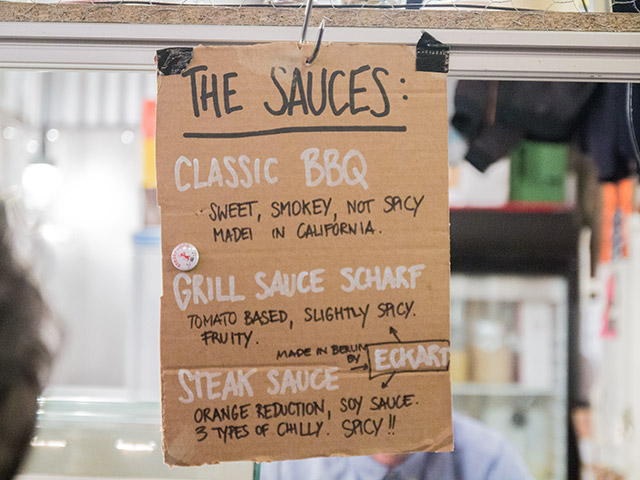 THE SAUCES:
CLASSIC BBQ
SWEET, SMOKEY, NOT SPICY
MADE IN CALIFORNIA.
GRILL SAUCE SCHARF
TOMATO BASED, SLIGHTLY SPICY.
FRUITY.
MADE IN BERLIN
BY
ECKART
STEAK SAUCE
ORANGE REDUCTION, SOY SAUCE.
3 TYPES OF CHILLY. SPICY!!